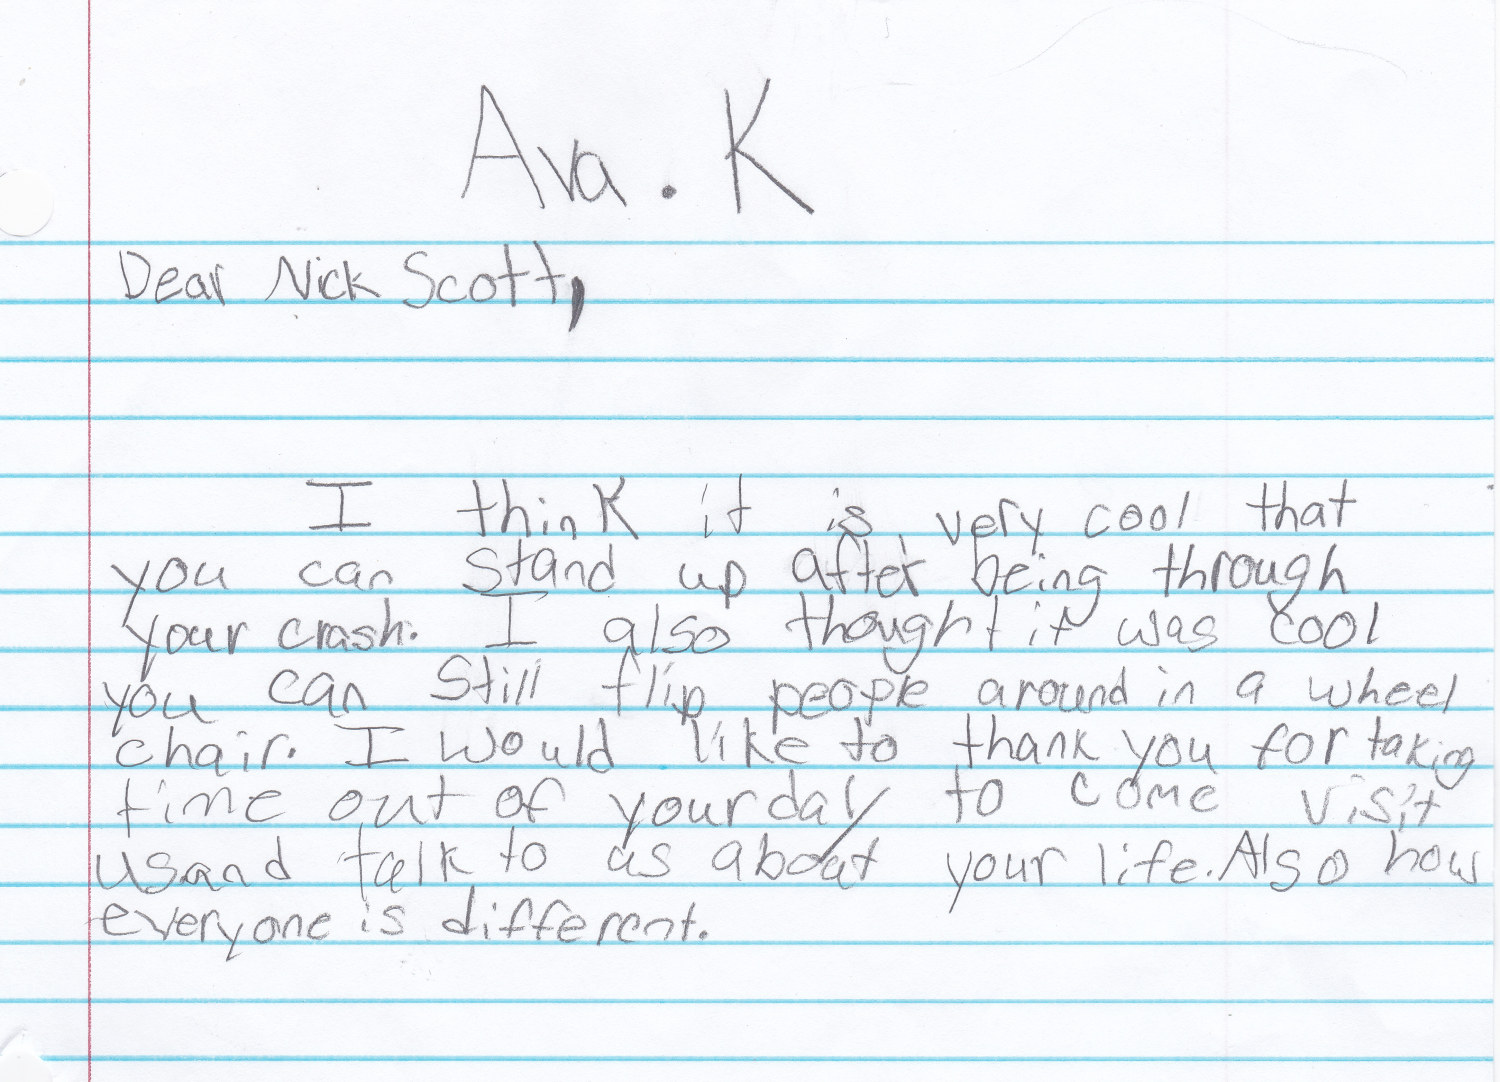 Ava . K
Dear Nick Scott,
I think it is very cool that
you can stand up after being through
your crash. I also thought it was cool
you can Still flip people around in a wheel
chair. I would like to thank you for taking
time out of your day to come visit
us and talk to us about your life. Also how
everyone is different.